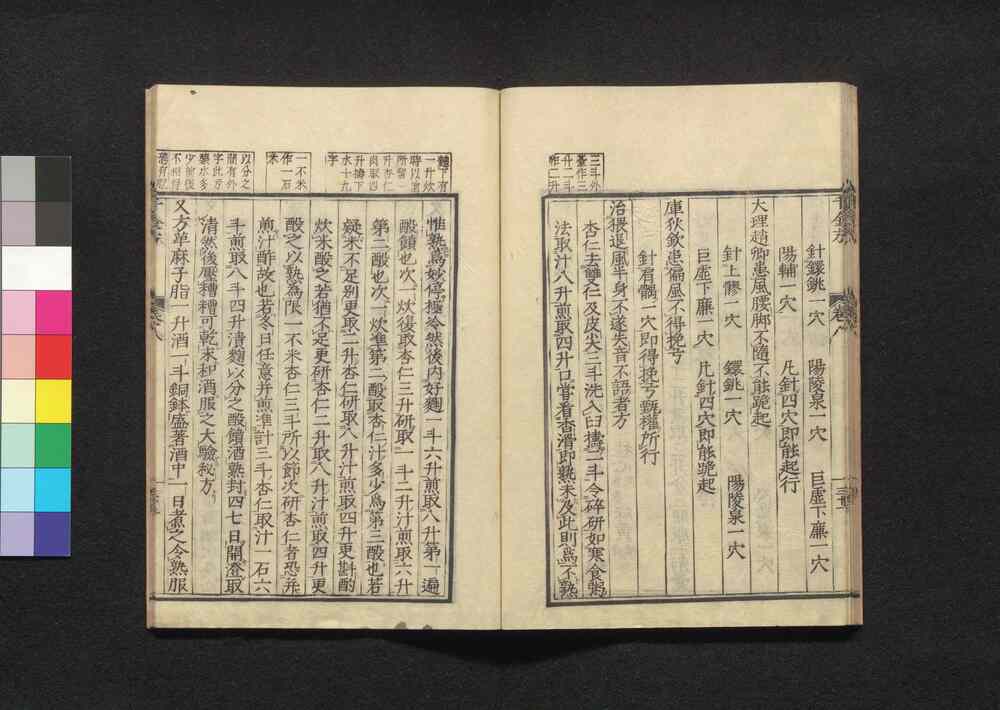 針鐶銚一穴　陽陵泉一穴　巨虛下廉一穴
陽輔一穴　凡針四穴即能起行
大理趙卿患風腰脚不隨不能跪起
針上髎一穴　鐶銚一穴　陽陵泉一穴
巨虛下廉一穴　凡針四穴即能跪起
庫狄欽患偏風不得挽弓
針肩髃一穴即得挽弓甄權所行
治猥退風半身不遂失音不語者方
杏仁去雙仁及皮尖三斗洗入臼擣二斗令碎研如寒食粥
法取汁八斗煎取四斗口嘗看香滑即熟未及此則爲不熟
惟熟爲妙停極冷然後內好麴一斗六升煎取八升第一遍
酘饙也次一炊復取杏仁三升研取一斗二升汁煎取六升
第二酘也次一炊準第二酘取杏仁汁多少爲第三酘也若
疑米不足别更取二升杏仁研取八升汁煎取四升更斟酌
炊米酘之若猶不足更研杏仁二升取八升汁煎取四升更
酘之以熟為限一不米杏仁三斗所以節次研杏仁者恐并
煎汁酢故也若冬日任意并煎準計三斗杏仁取汁一石六
斗煎取八斗四升漬麴以分之酘饙酒熟封四七日開澄取
清然後壓糟糟可乾末和酒服之大驗秘方
又方草麻子脂一升酒一斗銅鉢盛著酒中一日煮之令熟服
三斗外
臺作三
升二斗
作二升
麴下有
一升炊
時以前
所留一
升杏仁
肉取四
升擣下
水十九
字
一不米
作一石
米
以分之
間有外
字此方